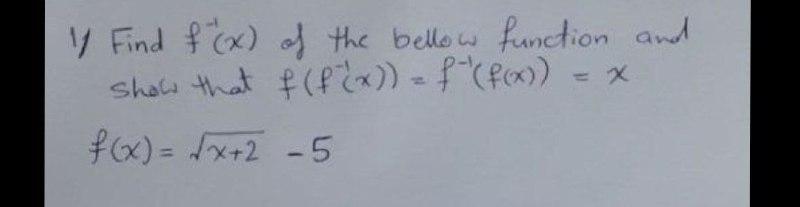 1/ Find f⁻¹(x) of the bellow function and
show that f(f⁻¹(x)) = f⁻¹(f(x)) = x
f(x) = √x+2 - 5